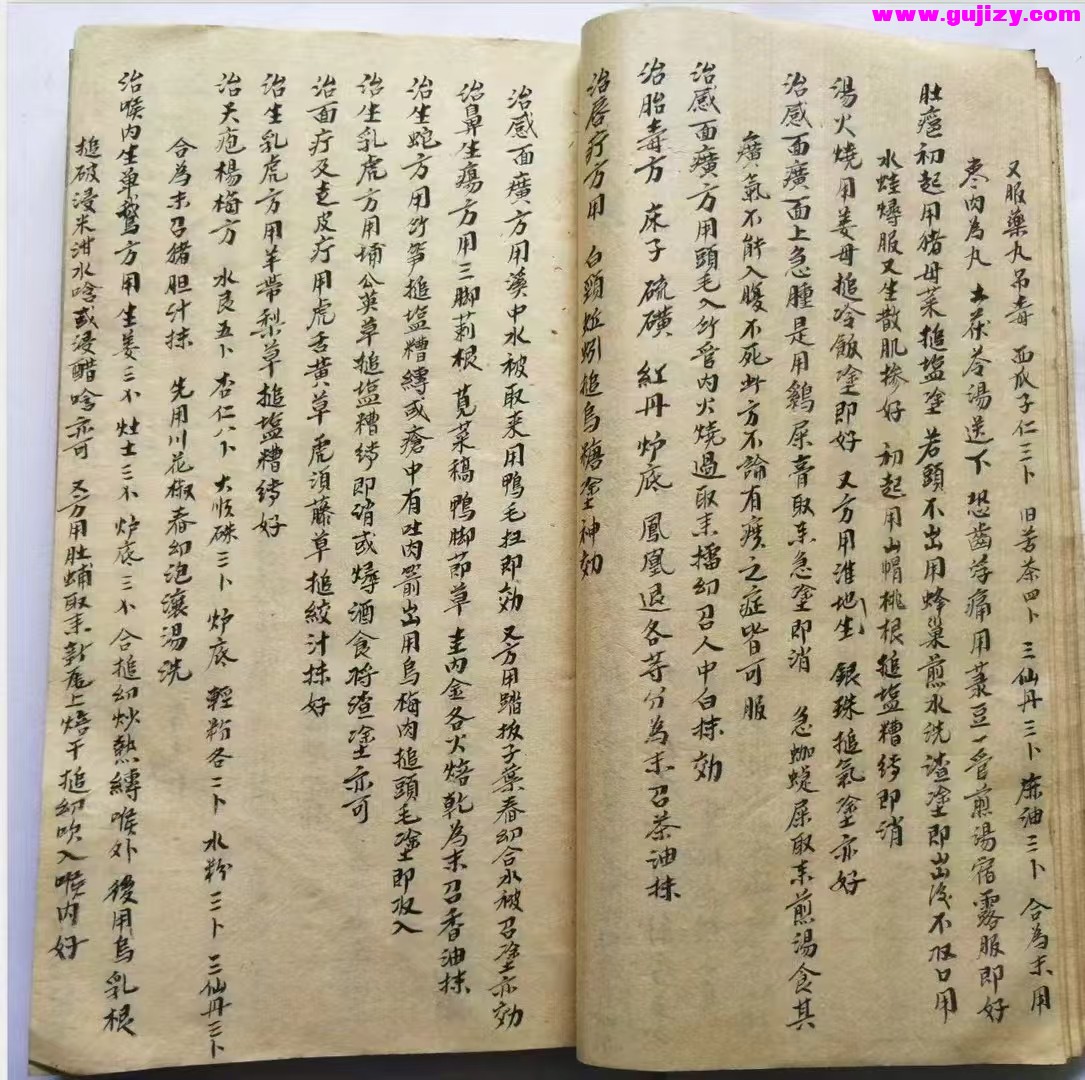 www.gujizy.com
又服藥丸吊毒 西瓜子仁三卜 旧苦茶四卜 三仙丹三卜 麻油三卜 合為末用
枣肉為丸 土茯苓湯送下 恐齒浮痛用菉豆一管煎湯宿露服即好
肚疸初起用猪母菜搥塩塗 若頭不出用蜂巢煎水洗渣塗即出後不収口用
水蛙燖服又生散肌摻好 初起用山帽桃根搥塩糟縛即消
湯火燒用姜母搥冷飯塗即好 又方用淮地生 銀珠搥氣塗亦好
治感面癀面上急腫是用鷄屎膏取來急塗即消 急蜘蟽屎取來煎湯食其
癀氣不能入腹不死此方不論有痰之症皆可服
治感面癀方用頭毛入竹管內火燒過取來擂幼召人中白抹効
治胎毒方 床子 硫磺 紅丹 炉底 鳳凰退各等分為末召茶油抹
治唇疔方用 白頸蚯蚓搥烏糖塗神効
治感面癀方用溪中水被取来用鴨毛扫即効 又方用踏板子葉舂幼合水被召塗亦効
治鼻生瘍方用三脚莿根 莧菜稿 鴨脚莭草 圭內金各火焙乾為末召香油抹
治生蛇方用竹笋搥塩糟縛或瘡中有吐肉箭出用烏梅肉搥頭毛塗即収入
治生乳虎方用埔公英草搥塩糟縛即消或燖酒食将渣塗亦可
治面疔及走皮疔用虎舌黄草 虎須藤草搥絞汁抹好
治生乳虎方用羊帶梨草搥塩糟縛好
治天疱楊梅方 水艮五卜 杏仁八卜 大順硃三卜 炉底 輕粉各二卜 水粉三卜 三仙丹三卜
合為末召猪胆汁抹 先用川花椒舂幼泡滾湯洗
治喉內生单鵞方用生姜三不 灶土三不 炉底三不 合搥幼炒熱縛喉外 後用烏乳根
搥破浸米泔水啥或浸醋啥亦可 又方用肚蜅取來新瓦上焙干搥幼吹入喉內好